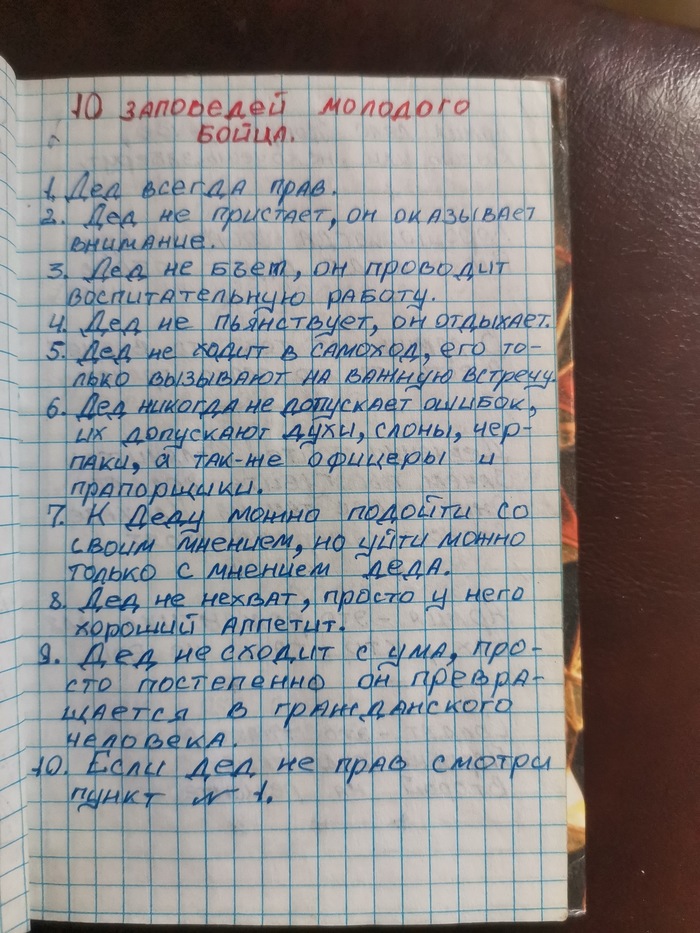 10 заповедей молодого
бойца.
1. Дед всегда прав.
2. Дед не пристает, он оказывает
внимание.
3. Дед не бъет, он проводит
воспитательную работу.
4. Дед не пьянствует, он отдыхает.
5. Дед не ходит в самоход, его то-
лько вызывают на важную встречу.
6. Дед никогда не допускает ошибок,
их допускают духи, слоны, чер-
паки, а так-же офицеры и
прапорщики.
7. К Деду можно подойти со
своим мнением, но уйти можно
только с мнением деда.
8. Дед не нехват, просто у него
хороший аппетит.
9. Дед не сходит с ума, про-
сто постепенно он превра-
щается в гражданского
человека.
10. Если дед не прав смотри
пункт № 1.